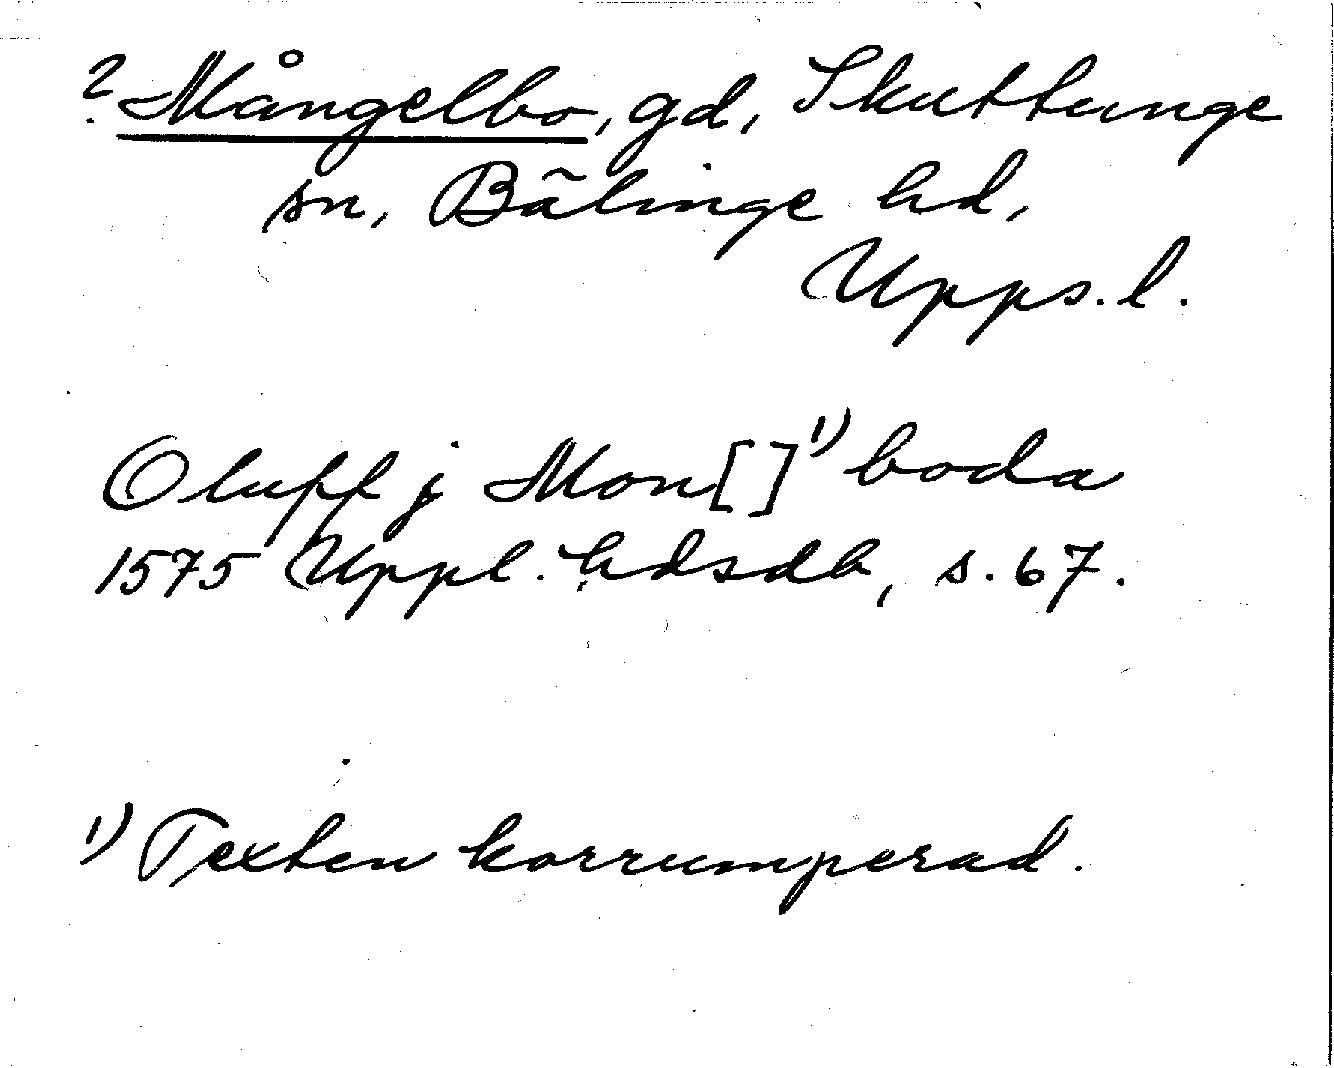 ? Mångelbo, gd, Skuttunge
sn, Bälinge hd,
Upps. l.
Oluff j Mon[ ]¹⁾ boda
1575 Uppl. hdsdb, s. 67.
¹⁾ Texten korrumperad.